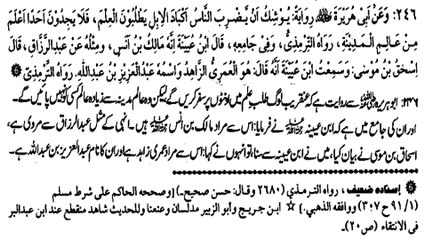 ٢٤٦: وَعَنْ اَبِي هُرَيْرَةَ ﷺ رِوَايَةً: يُوْشِكُ اَنْ يَّضْرِبَ النَّاسُ اَكْبَادَ الْاِبِلِ يَطْلُبُوْنَ الْعِلْمَ، فَلَا يَجِدُوْنَ اَحَدًا اَعْلَمَ
مِنْ عَالِمِ الْمَدِيْنَةِ، رَوَاهُ التِّرْمِذِيُّ، وَفِيْ جَامِعِهٖ، قَالَ ابْنُ عُيَيْنَةَ اِنَّهُ مَالِكُ بْنُ اَنَسٍ، وَمِثْلُهُ عَنْ عَبْدِالرَّزَّاقِ، قَالَ
اِسْحٰقُ بْنُ مُوْسٰى: وَسَمِعْتُ ابْنَ عُيَيْنَةَ اَنَّهُ قَالَ: هُوَ الْعُمَرِيُّ الزَّاهِدُ وَاسْمُهُ عَبْدُالْعَزِيْزِ بْنُ عَبْدِاللّٰهِ. رَوَاهُ التِّرْمِذِيُّ
٢٤٦: ابو ہریرہ سے روایت ہے کہ عنقریب لوگ طلب علم میں اونٹوں پر سفر کریں گے لیکن وہ عالم مدینہ سے زیادہ عالم کسی کو نہیں پائیں گے۔
اور ان کی جامع میں ہے کہ ابن عیینہ نے فرمایا: اس سے مراد مالک بن انس ہیں۔ انہی کے مثل عبدالرزاق سے مروی ہے،
اسحاق بن موسیٰ نے بیان کیا، میں نے ابن عیینہ سے سنا تو انہوں نے کہا: اس سے مراد عمری زاہد ہے اور ان کا نام عبدالعزیز بن عبداللہ ہے۔
إسناده ضعيف، رواه الترمذي (٢٦٨٠ وقال: حسن صحيح) [وصححه الحاكم على شرط مسلم
(٩١/١ ح ٣٠٧) ووافقه الذهبي.] ☆ ابن جريج وأبو الزبير مدلسان وعنعنا وللحديث شاهد منقطع عند ابن عبدالبر
في الانتقاء (ص ٢٠).